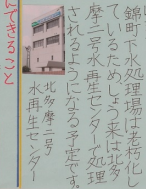 んできること
錦町下水処理場は老朽化し
ているため、しょう来は北多
摩二号水再生センターで処理
されるようになる予定です。
北多摩二号
水再生センター